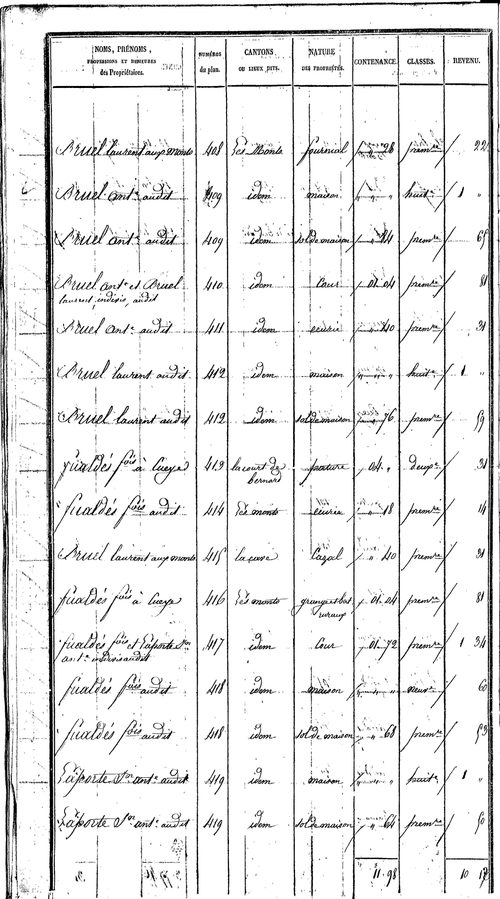 NOMS, PRÉNOMS, PROFESSIONS ET DEMEURES des Propriétaires. NUMÉROS du plan. CANTONS OU LIEUX DITS. NATURE DES PROPRIÉTÉS. CONTENANCE. CLASSES. REVENU.
Bruel laurent aux monts 408 Lès Monts journial " " 28 premre 22
Bruel ant. audit 409 idem maison " " " huit. 1 "
Bruel ant. audit 409 idem sol de maison " " 84 premre 65
Bruel ant. et Bruel 410 idem Cour " 01 04 premre 81
laurent, indivis, audit
Bruel ant. audit 411 idem ecurie " " 40 premre 31
Bruel laurent audit 412 idem maison " " " huit. 1 "
Bruel laurent audit 412 idem sol de maison " " 76 premre 59
fualdés fois à Cueye 413 la court de bernard pature " 04 " deuxe 31
fualdés fois audit 414 Lès monts ecurie " " 18 premre 14
Bruel laurent aux monts 415 la cave Cazal " " 40 premre 31
fualdés fois à Cueye 416 Lès monts grange et bat 01 04 premre 81
fualdés fois et Laporte Jn 417 idem Cour " 01 72 premre 1 34
ant. indivis audit
fualdés fois audit 418 idem maison " " " neuv. 60
fualdés fois audit 418 idem sol de maison " " 68 premre 53
Laporte Jn ant. audit 419 idem maison " " " huit. 1 "
Laporte Jn ant. audit 419 idem sol de maison " " 64 premre 50
11 98 10 17